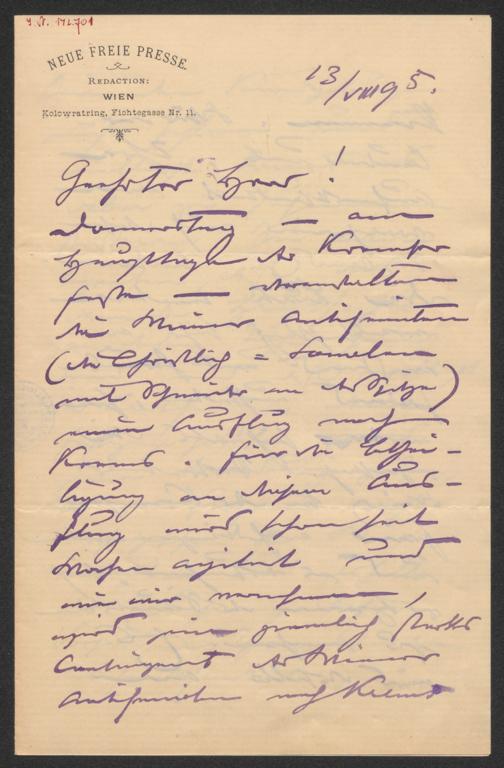 J. N. 172.701
NEUE FREIE PRESSE.
REDACTION:
WIEN
Kolowratring, Fichtegasse Nr. 11.
13/VIII 95.
Geehrter Herr!
Donnerstag — am
Haupttage der Kremser
Feste — veranstalten
die Wiener Antisemiten
(die Christlich = Socialen
mit Schneider an der Spitze)
einen Ausflug nach
Krems. Für die Bethei-
ligung an diesem Aus-
flug wird schon seit
Wochen agitirt und
wie wir vernehmen,
wird ein ziemlich starkes
Contingent der Wiener
Antisemiten nach Krems